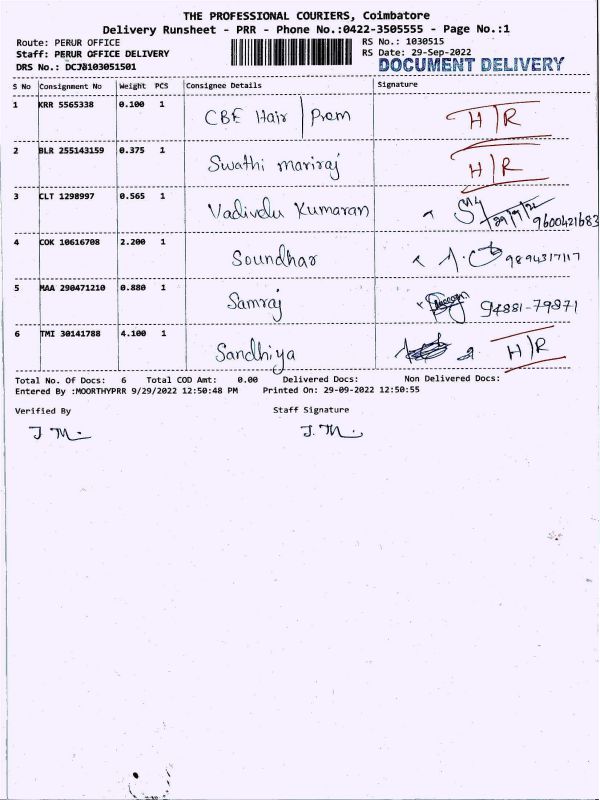 THE PROFESSIONAL COURIERS, Coimbatore
Delivery Runsheet - PRR - Phone No.:0422-3505555 - Page No.:1
Route: PERUR OFFICE RS No.: 1030515
Staff: PERUR OFFICE DELIVERY RS Date: 29-Sep-2022
DRS No.: 103051501 DOCUMENT DELIVERY
S No Consignment No Weight PCS Consignee Details Signature
1 KRR 5565338 0.100 1 CBE Hair | Prem H|R
2 BLR 255143159 0.375 1 Swathi mariraj H|R
3 CLT 1298997 0.565 1 Vadivelu Kumaran 29/9/22 9600421683
4 COK 10616708 2.200 1 Soundhar 9894317117
5 MAA 290471210 0.880 1 Samraj 94881-79871
6 TMI 30141788 4.100 1 Sandhiya H|R
Total No. Of Docs: 6 Total COD Amt: 0.00 Delivered Docs: Non Delivered Docs:
Entered By :MOORTHYPRR 9/29/2022 12:50:48 PM Printed On: 29-09-2022 12:50:55
Verified By Staff Signature